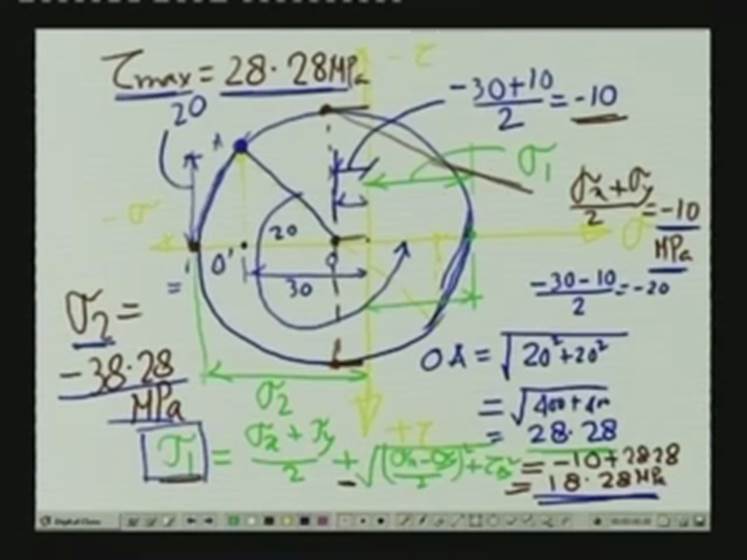 τmax = 28.28MPa
-τ
20
(-30+10)/2 = -10
A
σ1
(σx+σy)/2 = -10 MPa
-σ
σ
20
O'
O
30
(-30-10)/2 = -20
σ2 = -38.28 MPa
OA = √(20²+20²)
= √(400+400)
= 28.28
σ2
+τ
σ1 = (σx+σy)/2 ± √(((σx-σy)/2)²+τ²)
= -10+28.28
= 18.28MPa
Digital Class